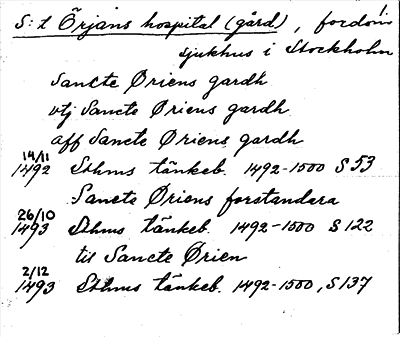 S:t Örjans hospital (gård), fordom
sjukhus i Stockholm
Sancte Øriens gardh
vtj Sancte Øriens gardh
aff Sancte Øriens gardh
14/11 1492 Sthms tänkeb. 1492-1500 S 53
Sancte Øriens forstandara
26/10 1493 Sthms tänkeb. 1492-1500 S 122
til Sancte Ørien
2/12 1493 Sthms tänkeb. 1492-1500, S 137